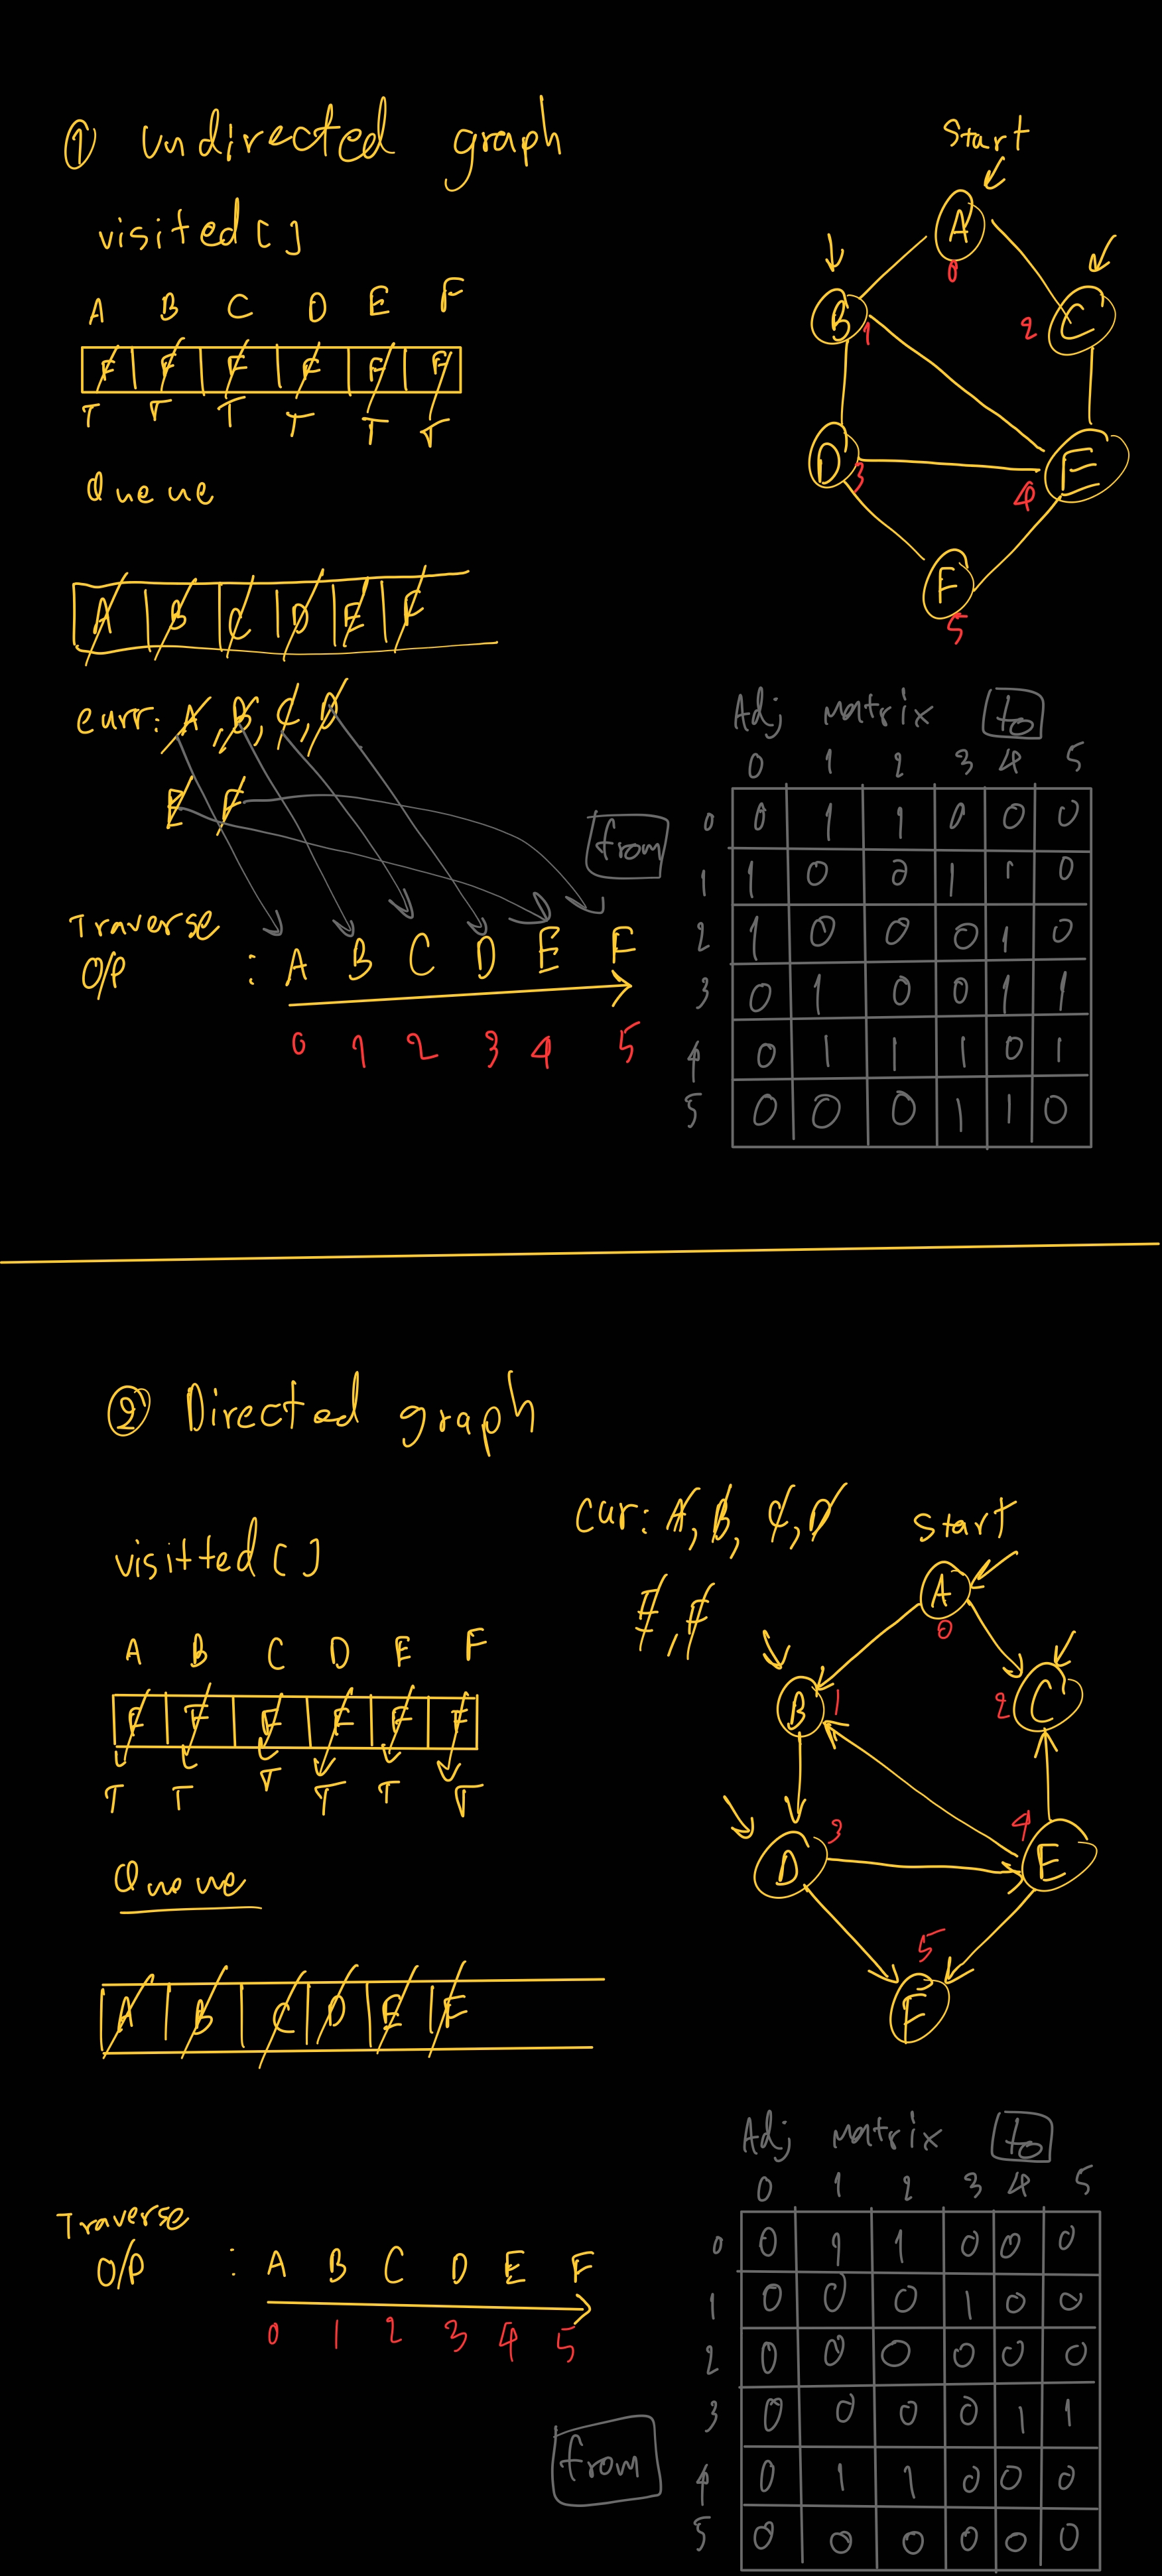 ① undirected graph
visited []
A B C D E F
F F F F F F
T T T T T T
Queue
A B C D E F
curr: A, B, C, D
E F
Traverse
O/P : A B C D E F
0 1 2 3 4 5
Start
A
0
B 1
2 C
D 3
4 E
F
5
Adj matrix to
0 1 2 3 4 5
from
0 0 1 1 0 0 0
1 1 0 0 1 1 0
2 1 0 0 0 1 0
3 0 1 0 0 1 1
4 0 1 1 1 0 1
5 0 0 0 1 1 0
② Directed graph
visitted []
A B C D E F
F F F F F F
T T T T T T
Queue
A B C D E F
Traverse
O/P : A B C D E F
0 1 2 3 4 5
cur: A, B, C, D
E, F
Start
A
0
B 1
2 C
D 3
4 E
5
F
Adj matrix to
0 1 2 3 4 5
from
0 0 1 1 0 0 0
1 0 0 0 1 0 0
2 0 0 0 0 0 0
3 0 0 0 0 1 1
4 0 1 1 0 0 0
5 0 0 0 0 0 0